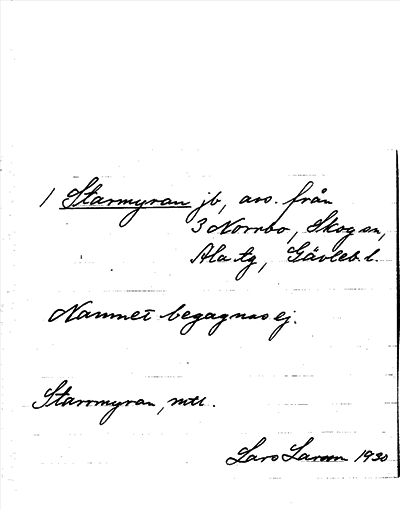 1 Starmyran jb, avs. från
3 Norrbo, Skogen,
Ala tg, Gävleb. l.
Namnet begagnas ej.
Starrmyran, mtl.
Lars Larson 1930